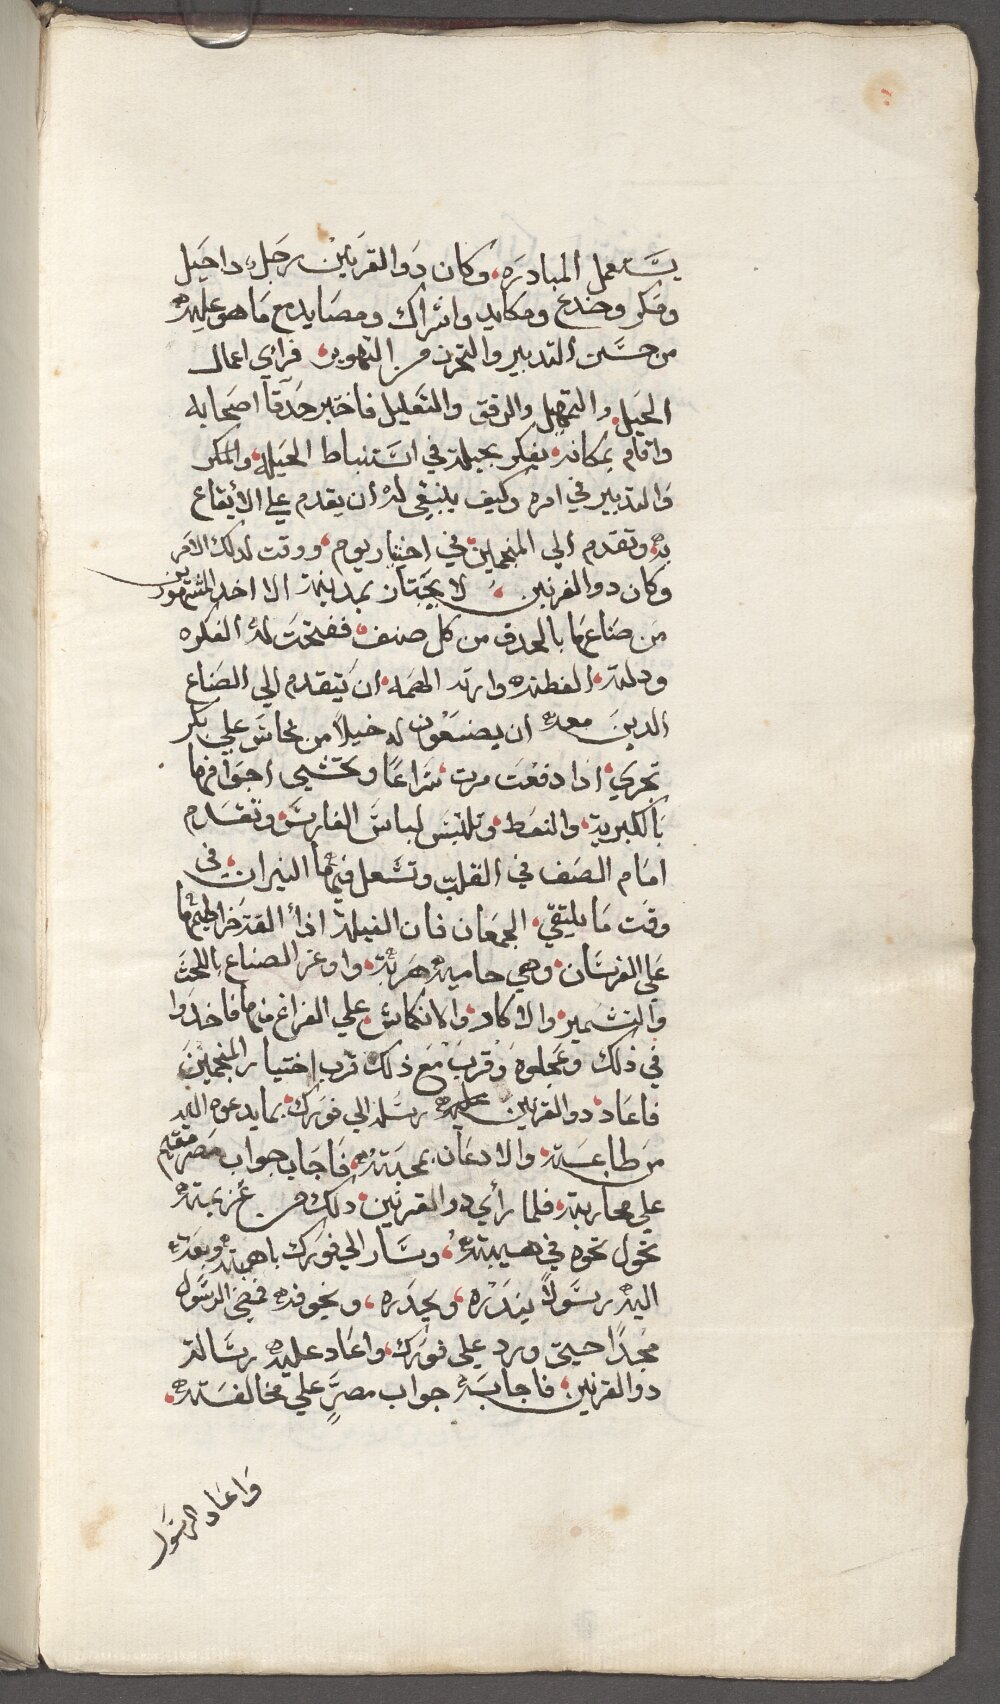 يستعمل المبادره، وكان دوالقرنين رجل دا حيل
ومكر وخدع ومكايد واشراك ومصايد مع ما هو عليه
من حسن التدبير والتحرز من التهوير، فراي اعمال
الحيل، والتمهل والرفق والتعليل فاختبر حدقا اصحابه
واقام بمكانه، يفكر بحيلة في استنباط الحيله، والمكر
والتدبير في امره وكيف ينبغي له ان يقدم علي الأيقاع
به، وتقدم الي المنجمين، في اختيار يوم، ووقت لدلك الامر
وكان دوالقرنين، لا يجتاز بمدينة الا اخد المشهورين
من صناعها بالحدق من كل صنف، ففتحت له الفكره
ودلته، الفطنه وارته الهمه، ان يتقدم الي الصناع
الدين معه ان يصنعون له خيلا من نحاس علي بكر
تجري، ادا دفعت مرت، سراعا وتحشي اجوافها
بالكبريت، والنفط، وتلتبس لباس الفارس، وتقدم
امام الصف في القلب وتشعل فيها النيران، في
وقت ما يلتقي، الجمعان فان الفيلة اذا القت خراطيمها
علي الفرسان، وهي حاميه هربت، واوعز الصناع بالحث
والتشمير، والاكاد، والانكماش، علي الفراغ منها فاخدوا
في ذلك وعجلوه وقرب مع ذلك قرب اختيار المنجمين
فاعاد، دوالقرنين عليه رسله الي فورك، بما يدعوه اليه
من طاعته، والادعان بمحبته، فاجاب جواب مصر مقيم
علي محاربته، فلما راي دوالقرنين، دلك من عزيمته
تحول نحوه في هيبته، وسار الي فورك باهبته وبعت
اليه رسولا ينذره، ويحدره، ويخوفه فمضي الرسول
مجدا حيتي ورد علي فورك، واعاد عليه رسالة
دوالقرنين، فاجابه جواب مصر علي مخالفته،
واعاد الرسول